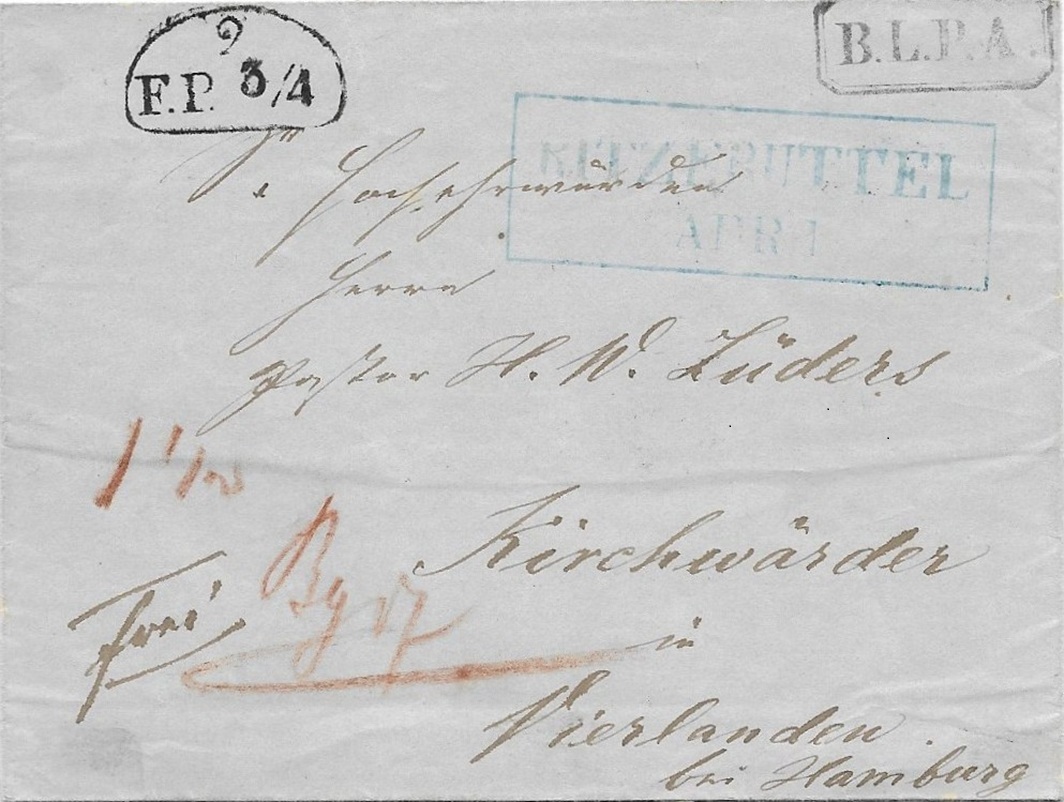 9
F.P. 3/4
B.L.P.A.
RITZEBUTTEL
Sr Hochehrwürden
Herrn
Pastor H. W. Lüders
1 1/2
Kirchwärder
frei
in
Vierlanden.
bei Hamburg